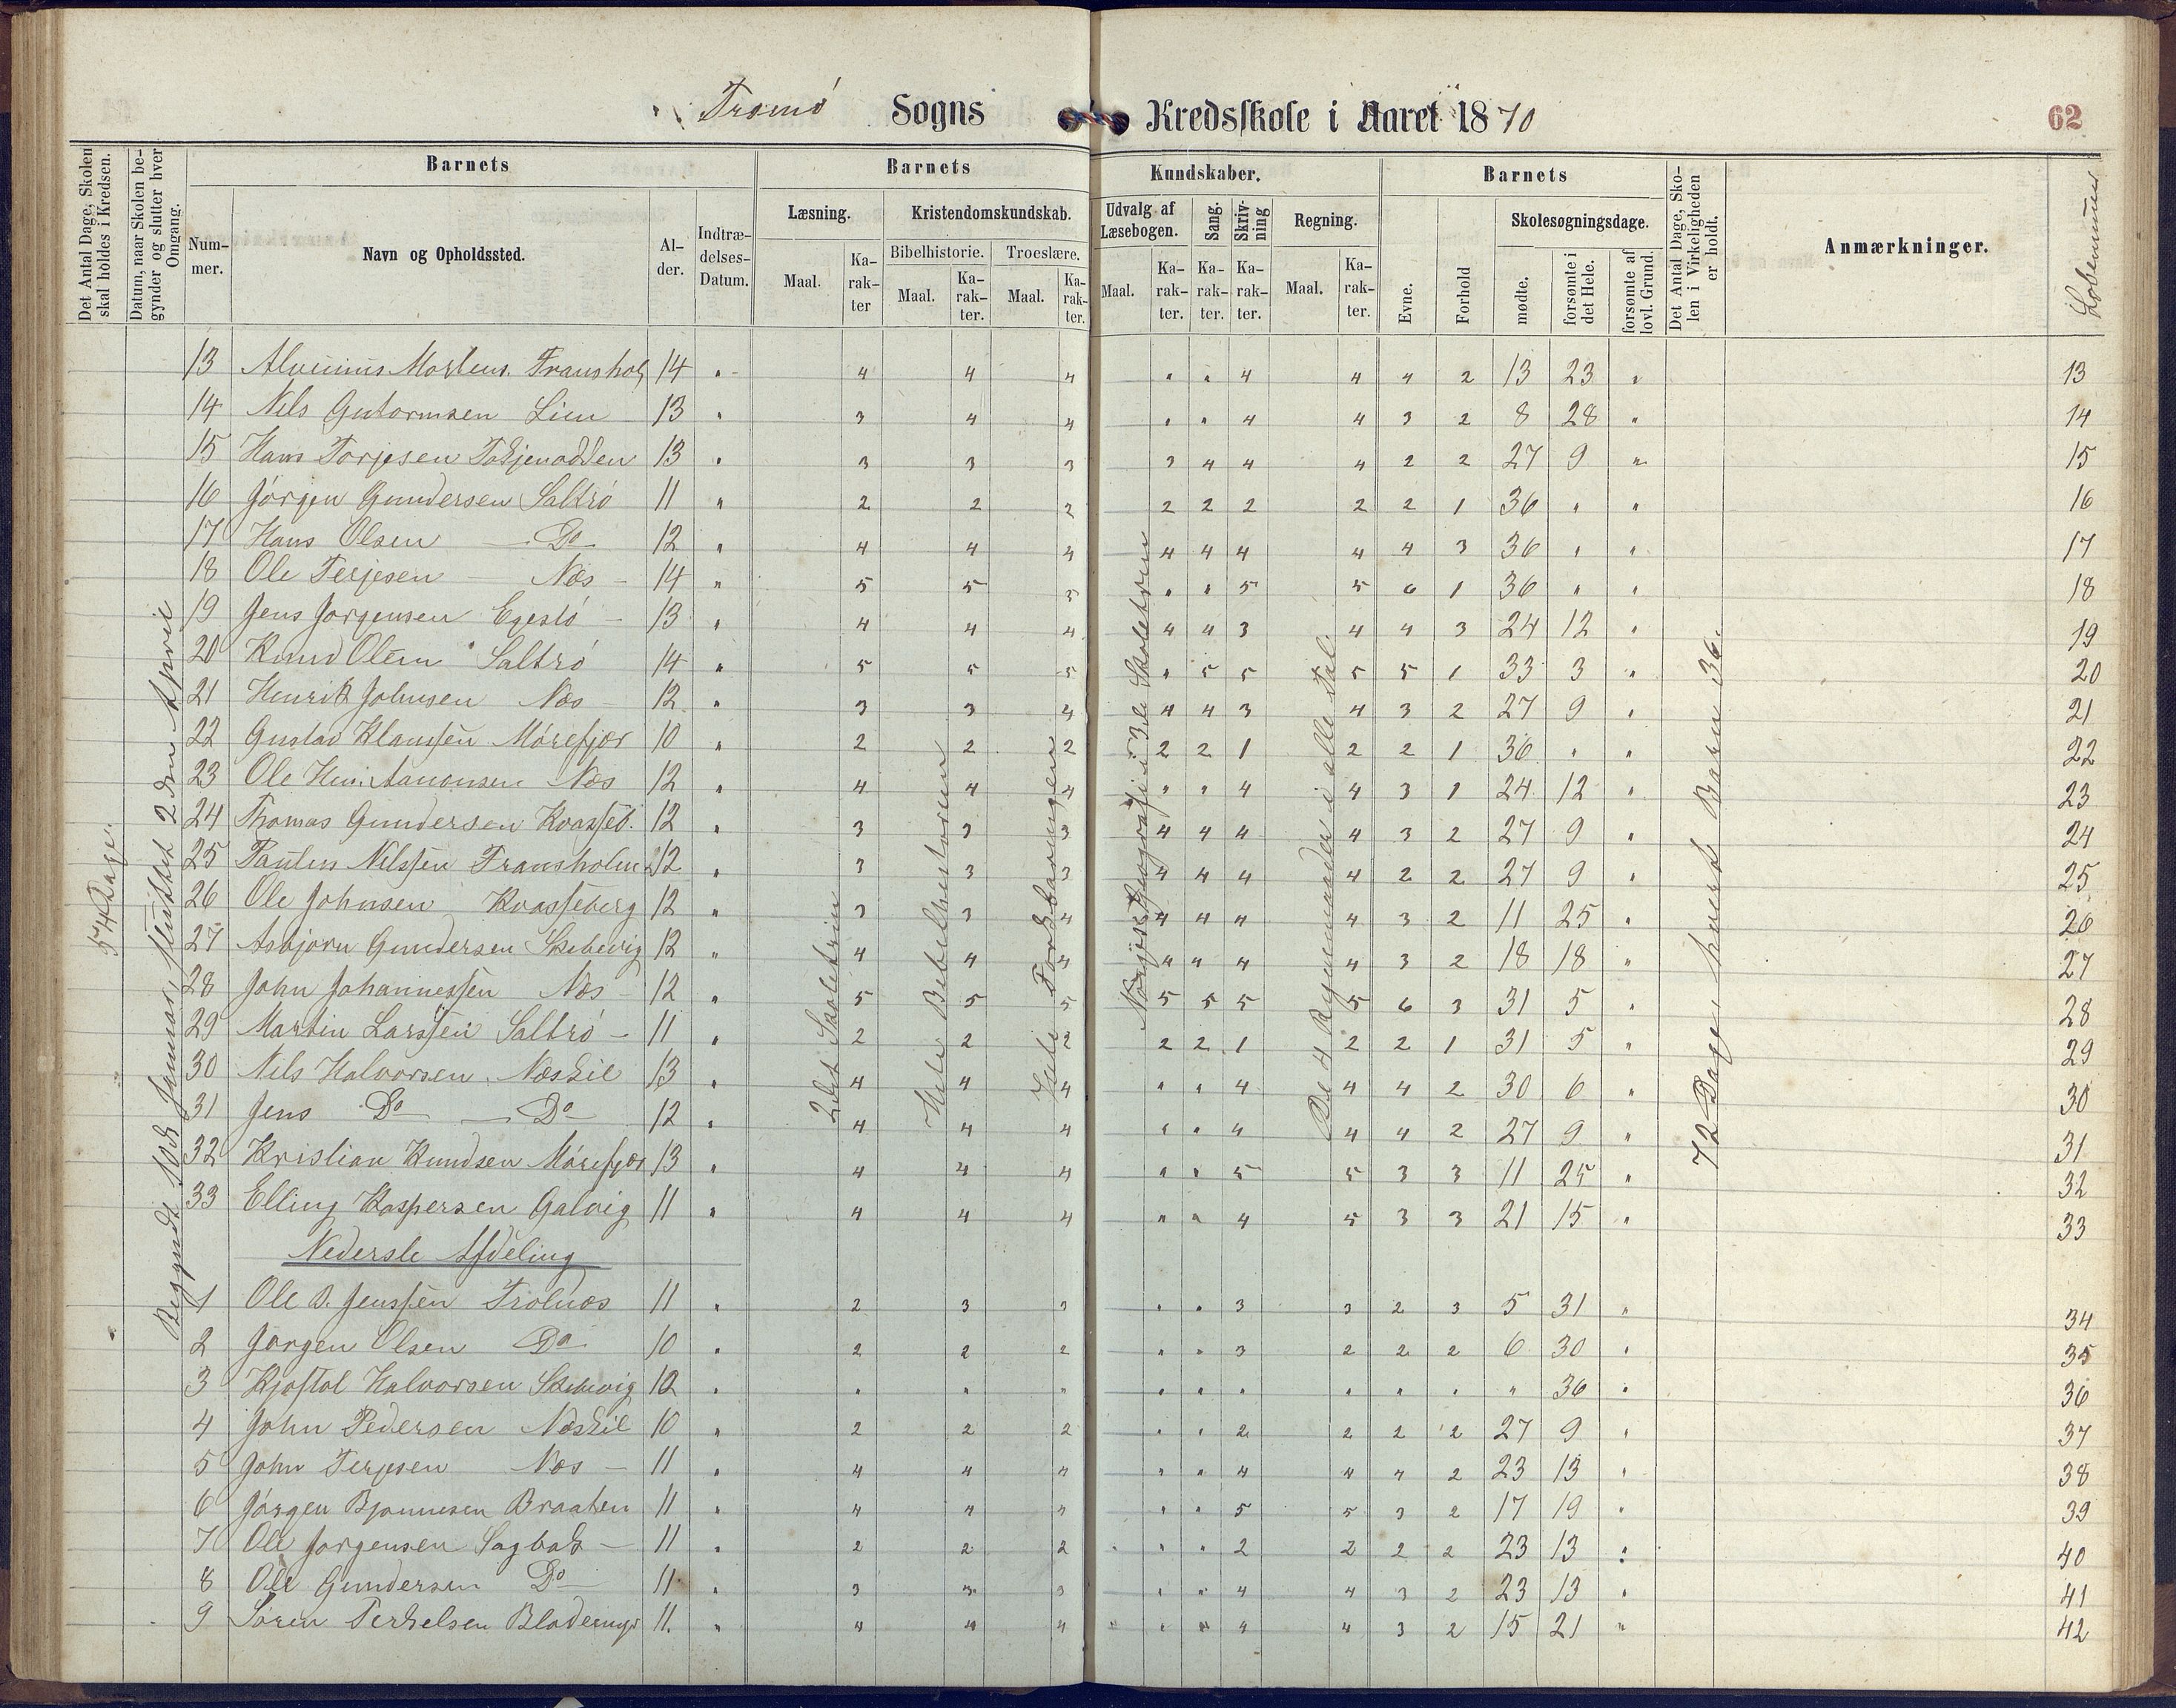 Tromö Sogns Kredsskole i Aaret 1870
62
Det Antal Dage, Skolen skal holdes i Kredsen.
Datum, naar Skolen begynder og slutter hver Omgang.
Barnets
Nummer.
Navn og Opholdssted.
Alder.
Indtrædelses-Datum.
Barnets Kundskaber.
Læsning.
Maal.
Karakter
Kristendomskundskab.
Bibelhistorie.
Maal.
Karakter.
Troeslære.
Maal.
Karakter.
Udvalg af Læsebogen.
Maal.
Karakter.
Sang.
Karakter.
Skrivning
Karakter.
Regning.
Maal.
Karakter.
Barnets
Evne.
Forhold
Skolesøgningsdage.
mødte.
forsømte i det Hele.
forsømte af lovl. Grund.
Det Antal Dage, Skolen i Virkeligheden er holdt.
Anmærkninger.
Löbenumer
54 Dage.
Begyndt 10de Januar, sluttet 2den April
2det Skoletrin
Hele Bibelhistorien
Hele Forklaringen
Norges Geografi i 3de Skoletrin
De 4 Regnemaader i alle Tal.
72 Dage, hvert Barn 36.
13 Alvinius Mortens. Fransholm 14 " 4 4 4 " " 4 4 4 2 13 23 " 13
14 Nils Gutormsen Lien 13 " 3 4 4 " " 4 4 3 2 8 28 " 14
15 Hans Torjesen Toskjenodden 13 " 3 3 3 3 4 4 4 2 2 27 9 " 15
16 Jörgen Gundersen Saltrö 11 " 2 2 2 2 2 2 2 2 1 36 " " 16
17 Hans Olsen Do 12 " 4 4 4 4 4 4 4 4 3 36 " " 17
18 Ole Terjesen Næs 14 " 5 5 5 " " 5 5 6 1 36 " " 18
19 Jens Jorgensen Egeslö 13 " 4 4 4 4 4 3 4 4 3 24 12 " 19
20 Knud Olsen Saltrö 14 " 5 5 5 " 5 5 5 5 1 33 3 " 20
21 Henrik Johnsen Næs 12 " 3 3 4 4 4 3 4 3 2 27 9 " 21
22 Gustav Klaussen Mörefjær 10 " 2 2 2 2 2 1 2 2 1 36 " " 22
23 Ole Hein. Aanonsen Næs 12 " 4 4 4 " " 4 4 3 1 24 12 " 23
24 Thomas Gundersen Kvasseb. 12 " 3 3 3 4 4 4 4 3 2 27 9 " 24
25 Paulus Nilssen Fransholm 12 " 3 3 3 4 4 4 4 2 2 27 9 " 25
26 Ole Johnsen Kvasseberg 12 " 3 3 4 4 4 4 4 3 2 11 25 " 26
27 Asbjorn Gundersen Skibevig 12 " 4 4 4 4 4 4 4 3 2 18 18 " 27
28 John Johannessen Næs 12 " 5 5 5 5 5 5 5 6 3 31 5 " 28
29 Martin Larssen Saltrö 11 " 2 2 2 2 2 1 2 2 1 31 5 " 29
30 Nils Halvorsen Næskil 13 " 4 4 4 " " 4 4 4 2 30 6 " 30
31 Jens Do Do 12 " 4 4 4 " " 4 4 4 2 27 9 " 31
32 Kristian Knudsen Mörefjær 13 " 4 4 4 " " 5 5 3 3 11 25 " 32
33 Elling Kaspersen Galvig 11 " 4 4 4 " " 4 5 3 3 21 15 " 33
Nederste Afdeling
1 Ole B. Jenssen Trolnæs 11 " 2 3 3 " " 3 3 2 3 5 31 " 34
2 Jorgen Olsen Do 10 " 2 2 2 " " 3 2 2 2 6 30 " 35
3 Kjostol Halvorsen Skibevig 12 " " " " " " " " " " " 36 " 36
4 John Pedersen Næskil 10 " 2 2 2 " " 2 2 2 2 27 9 " 37
5 John Terjesen Næs 11 " 4 4 4 " " 4 4 4 2 23 13 " 38
6 Jörgen Bjonnesen Braaten 11 " 4 4 4 " " 5 5 3 2 17 19 " 39
7 Ole Jorgensen Sagbak 11 " 2 2 2 " " 2 2 2 2 23 13 " 40
8 Ole Gundersen Do 11 " 3 3 3 " " 4 4 3 2 23 13 " 41
9 Sören Terkelsen Blodemyr 11. " 4 4 4 " " 4 4 3 2 15 21 " 42